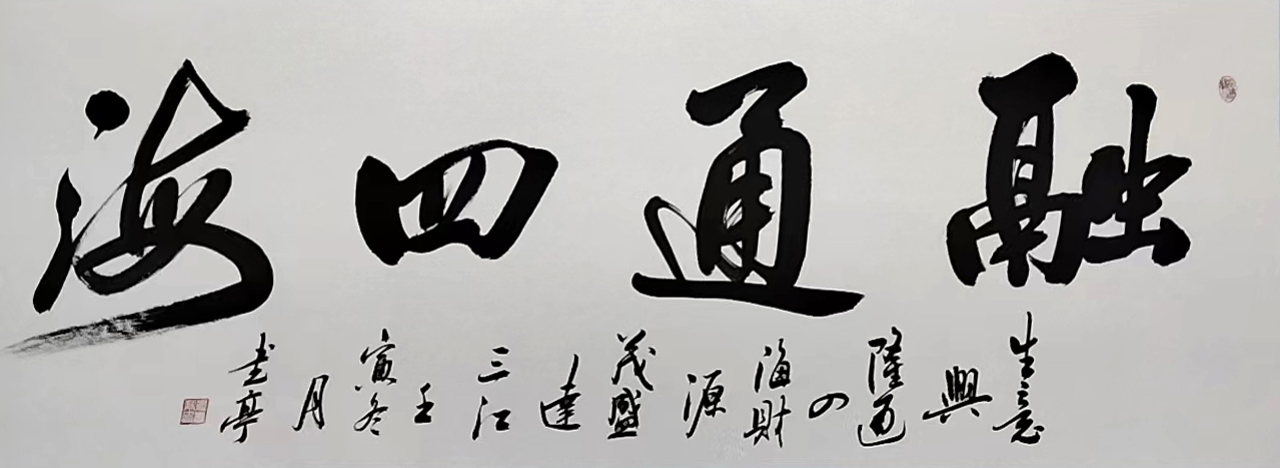 融通四海
生意
興
隆通
四
海財
源
茂盛
達
三江
壬
寅冬
月
書亭